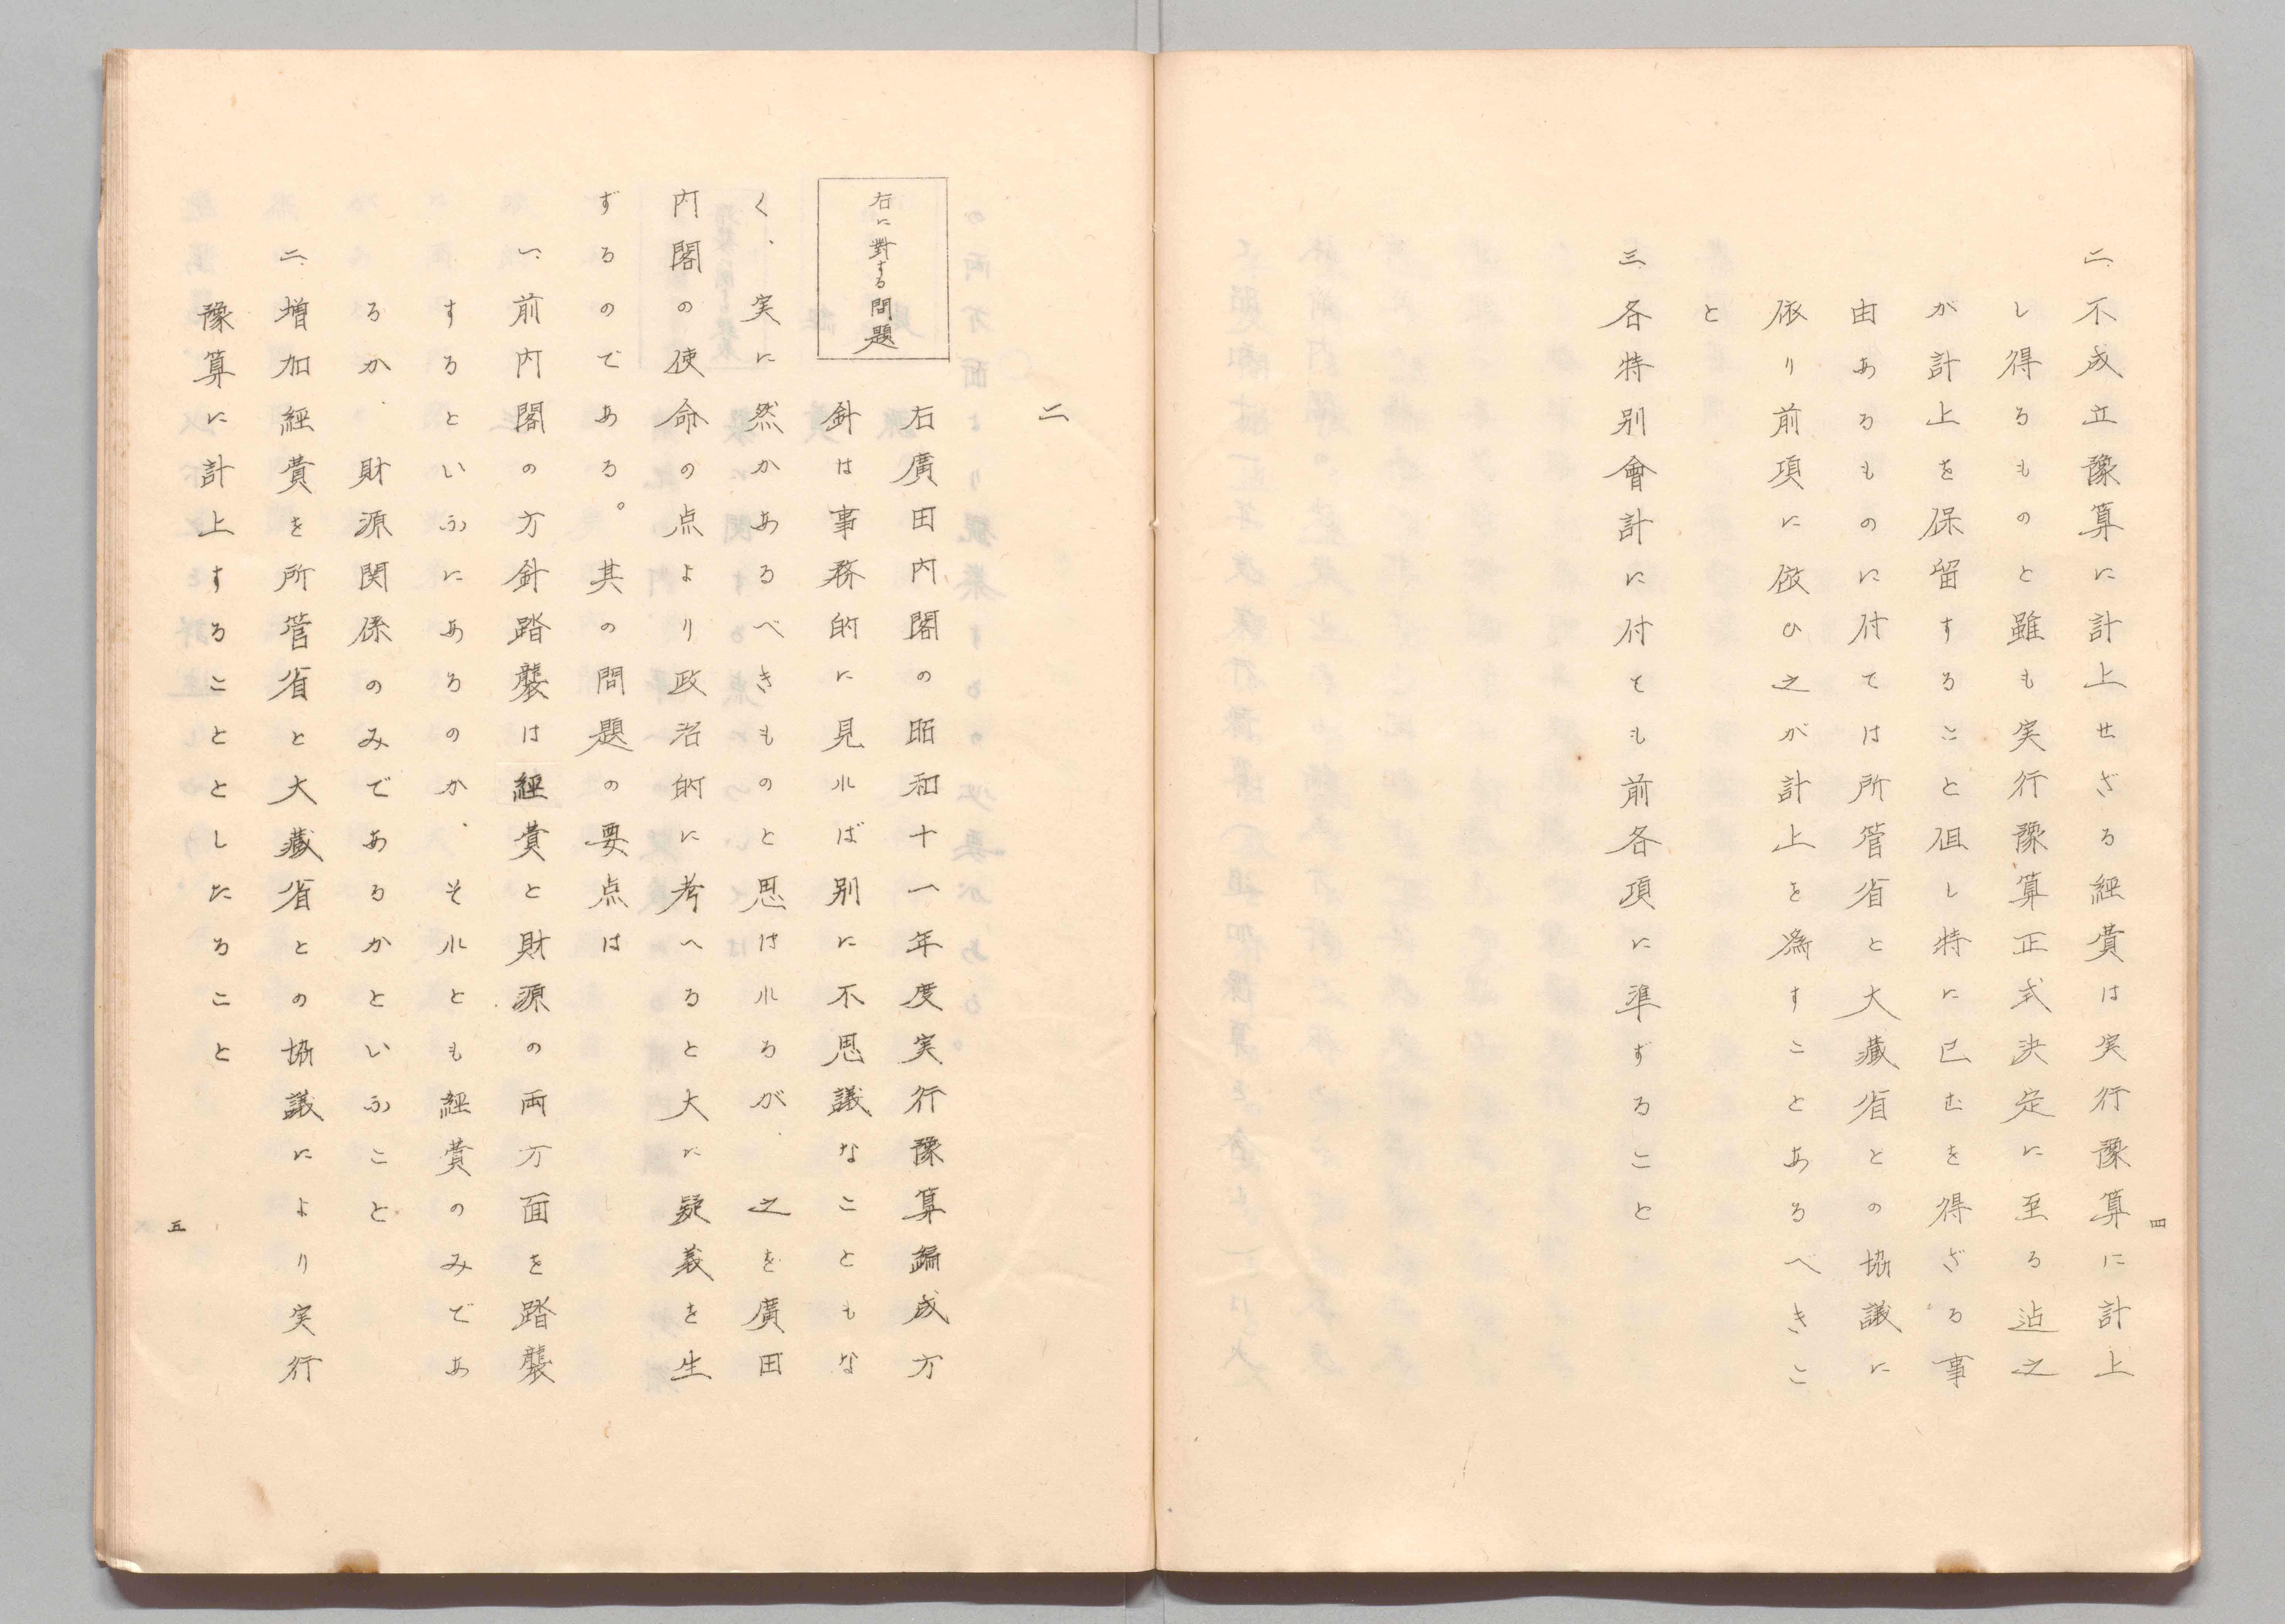 二、不成立豫算に計上せざる経費は実行豫算に計上
し得るものと雖も実行豫算正式決定に至る迠之
が計上を保留すること但し特に已むを得ざる事
由あるものに付ては所管省と大藏省との協議に
依り前項に倣ひ之が計上を為すことあるべきこ
と
三、各特別會計に付ても前各項に準ずること
四
二
右に對する問題
右廣田内閣の昭和十一年度実行豫算編成方
針は事務的に見れば別に不思議なこともな
く、実に然かあるべきものと思はれるが、之を廣田
内閣の使命の点より政治的に考へると大に疑義を生
ずるのである。其の問題の要点は
一、前内閣の方針踏襲は経費と財源の両方面を踏襲
するといふにあるのか、それとも経費のみであ
るか、財源関係のみであるかといふこと
二、増加経費を所管省と大藏省との協議により実行
豫算に計上することとしたること
五